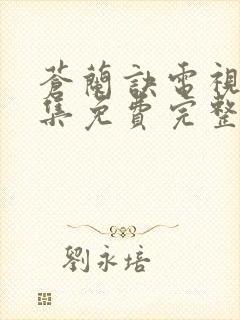 蒼蘭訣電視
集免費完整
劉永培